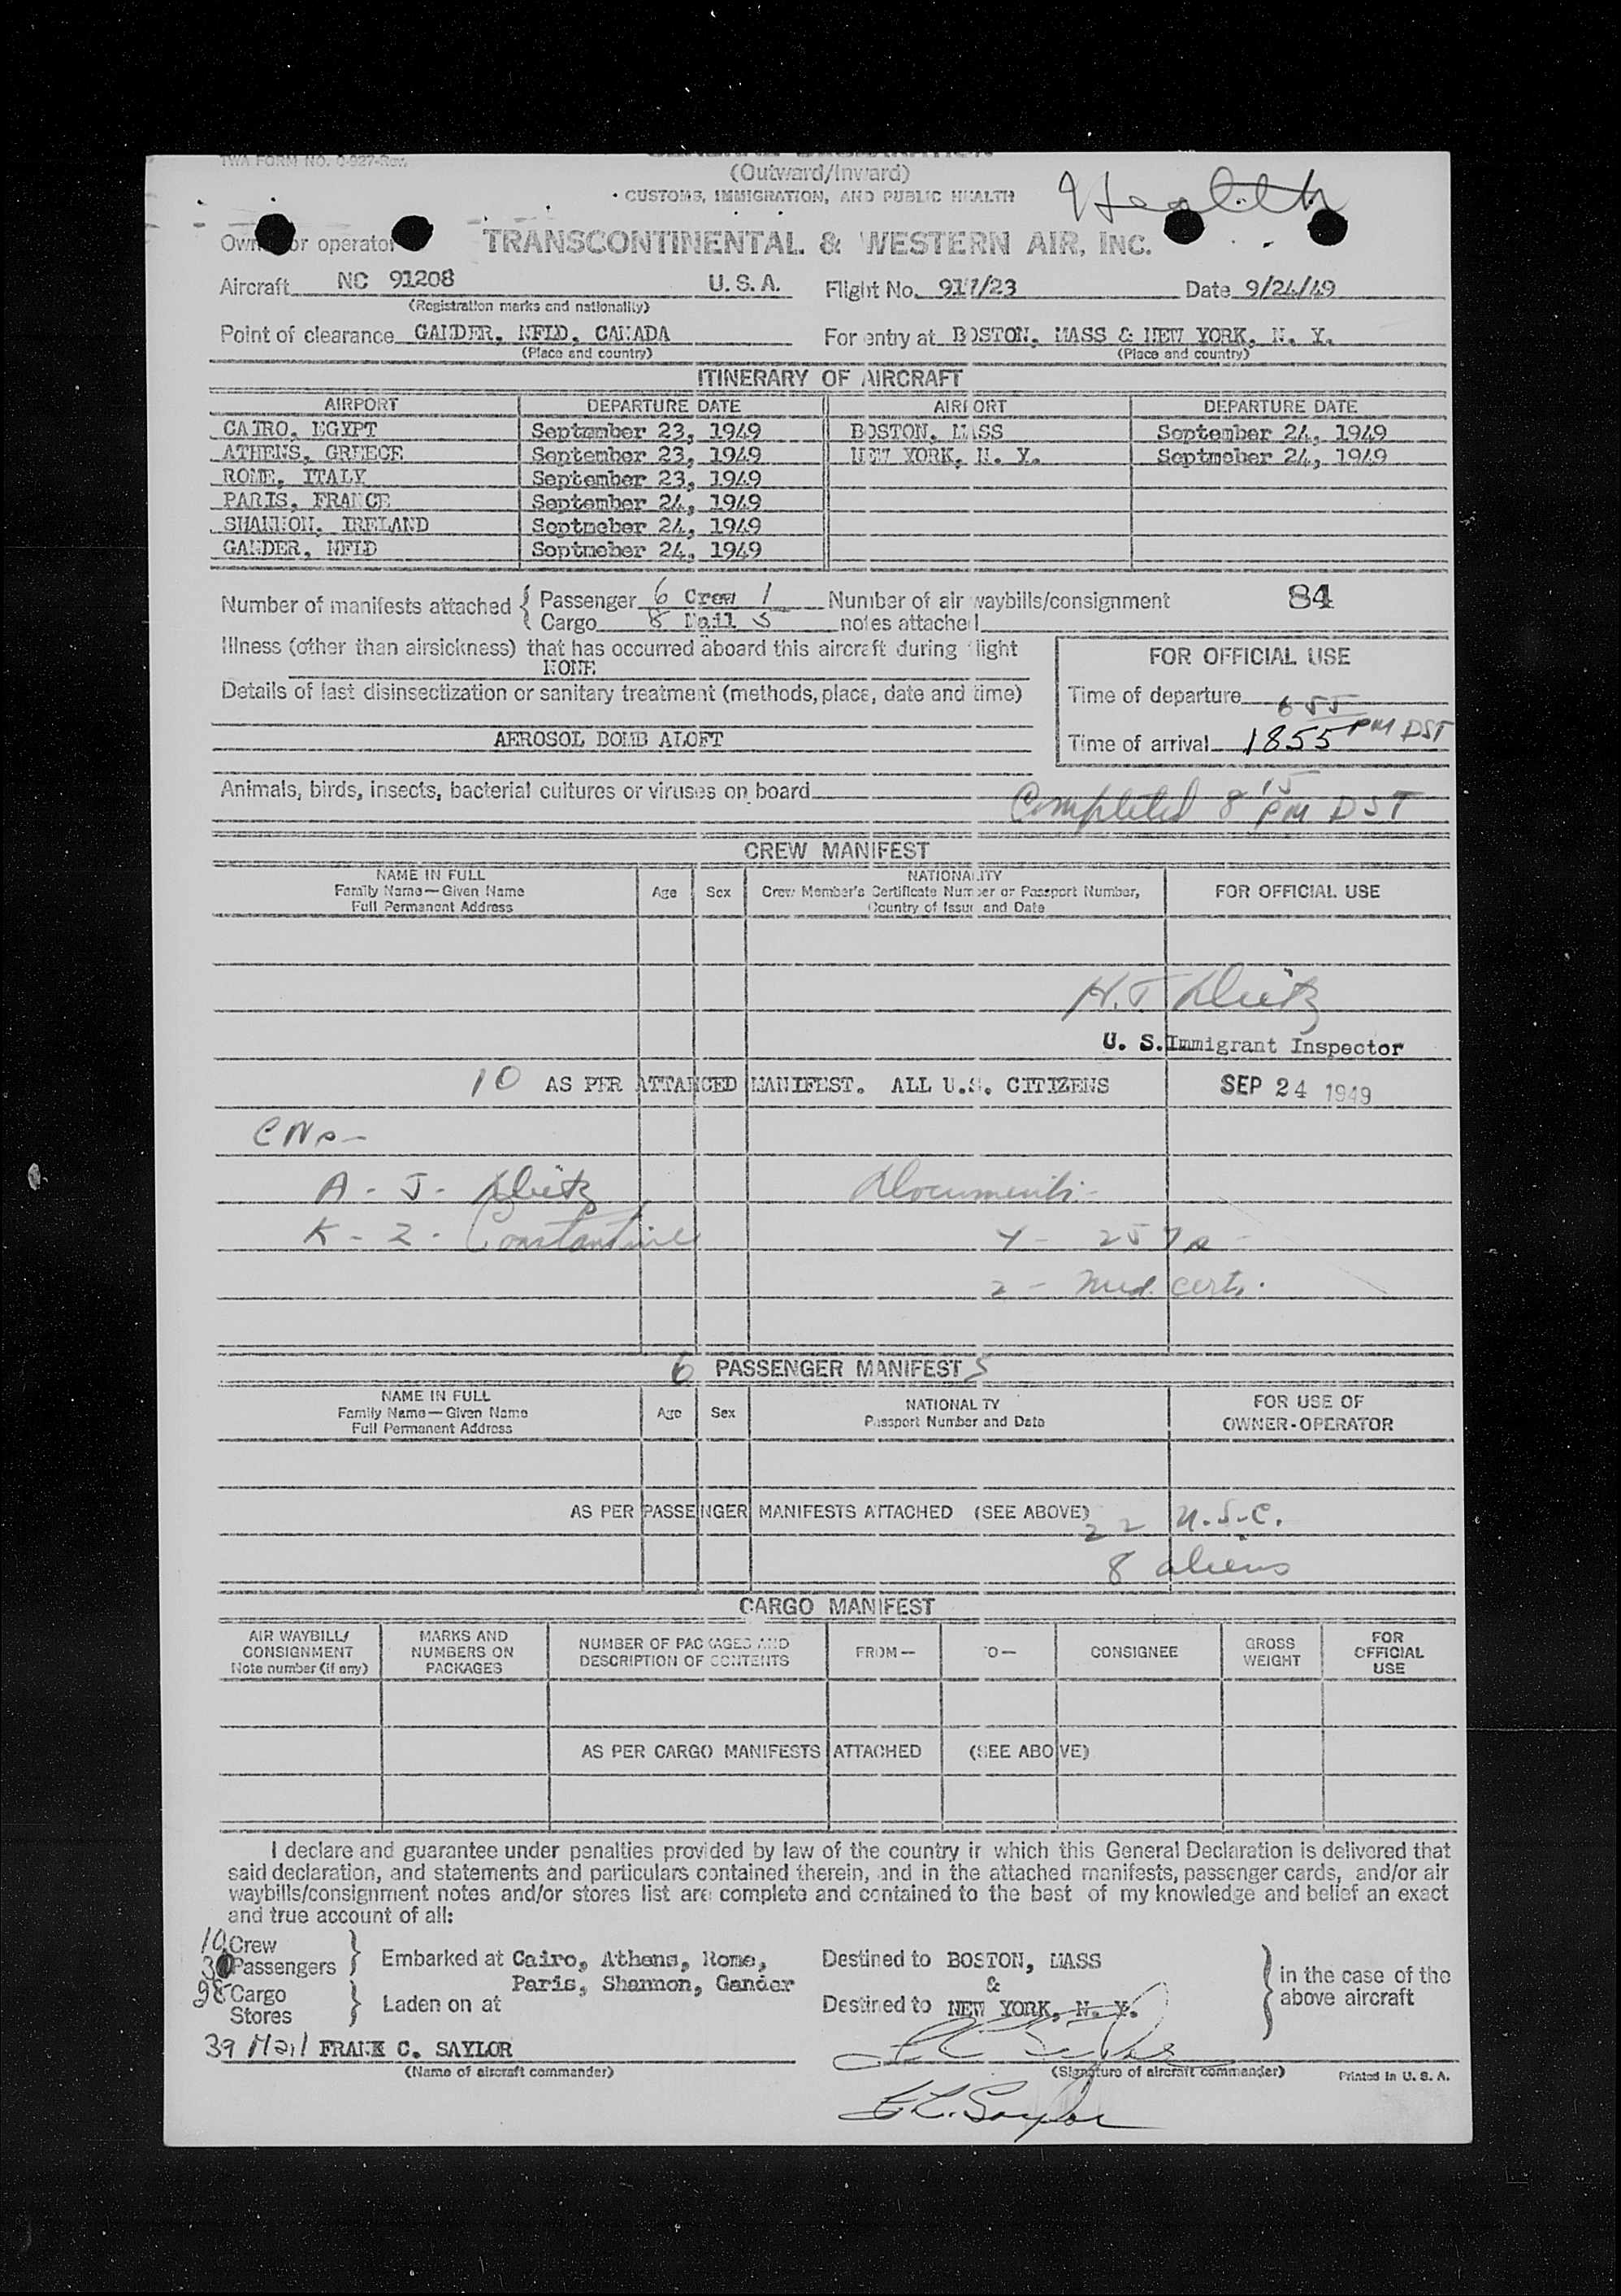 TWA FORM NO. 0-927-Rev.
(Outward/Inward)
CUSTOMS, IMMIGRATION, AND PUBLIC HEALTH
Health
or operator TRANSCONTINENTAL & WESTERN AIR, INC.
Aircraft NC 91208 U. S. A. Flight No. Date 9/24/49
(Registration marks and nationality)
Point of clearance GANDER, NFLD, CANADA For entry at BOSTON, MASS & NEW YORK, N. Y.
(Place and country) (Place and country)
ITINERARY OF AIRCRAFT
AIRPORT DEPARTURE DATE AIRPORT DEPARTURE DATE
CAIRO, EGYPT September 23, 1949 BOSTON, MASS September 24, 1949
ATHENS, GREECE September 23, 1949 NEW YORK, N. Y. Septmeber 24, 1949
ROME, ITALY September 23, 1949
PARIS, FRANCE September 24, 1949
SHANNON, IRELAND Septmeber 24, 1949
GANDER, NFLD Septmeber 24, 1949
Number of manifests attached { Passenger 6 Crew 1 Number of air waybills/consignment 84
Cargo 8 Mail 5 notes attached
Illness (other than airsickness) that has occurred aboard this aircraft during flight
NONE
FOR OFFICIAL USE
Details of last disinsectization or sanitary treatment (methods, place, date and time)
Time of departure 6 55
AEROSOL BOMB ALOFT
Time of arrival 1855 PM DST
Animals, birds, insects, bacterial cultures or viruses on board
Completed 8 15 PM DST
CREW MANIFEST
NAME IN FULL
Family Name—Given Name
Full Permanent Address
Age Sex
NATIONALITY
Crew Member's Certificate Number or Passport Number,
Country of Issue and Date
FOR OFFICIAL USE
H. T. Dietz
U. S. Immigrant Inspector
10 AS PER ATTAHCED MANIFEST. ALL U.S. CITIZENS SEP 24 1949
A - J - Dietz Documents -
K - Z - Constantine
2 - Med. certs.
6 PASSENGER MANIFEST S
NAME IN FULL
Family Name—Given Name
Full Permanent Address
Age Sex
NATIONALITY
Passport Number and Date
FOR USE OF
OWNER-OPERATOR
AS PER PASSENGER MANIFESTS ATTACHED (SEE ABOVE)
22 U.S.C.
8 aliens
CARGO MANIFEST
AIR WAYBILL/
CONSIGNMENT
Note number (if any)
MARKS AND
NUMBERS ON
PACKAGES
NUMBER OF PACKAGES AND
DESCRIPTION OF CONTENTS
FROM— TO— CONSIGNEE
GROSS
WEIGHT
FOR
OFFICIAL
USE
AS PER CARGO MANIFESTS ATTACHED (SEE ABOVE)
I declare and guarantee under penalties provided by law of the country in which this General Declaration is delivered that
said declaration, and statements and particulars contained therein, and in the attached manifests, passenger cards, and/or air
waybills/consignment notes and/or stores list are complete and contained to the best of my knowledge and belief an exact
and true account of all:
10 Crew
30 Passengers
Embarked at Cairo, Athens, Rome,
Paris, Shannon, Gander
Destined to BOSTON, MASS
&
in the case of the
above aircraft
98 Cargo
Stores
Laden on at
Destined to NEW YORK, N. Y.
39 Mail FRANK C. SAYLOR
(Name of aircraft commander) (Signature of aircraft commander) Printed in U. S. A.
Saylor